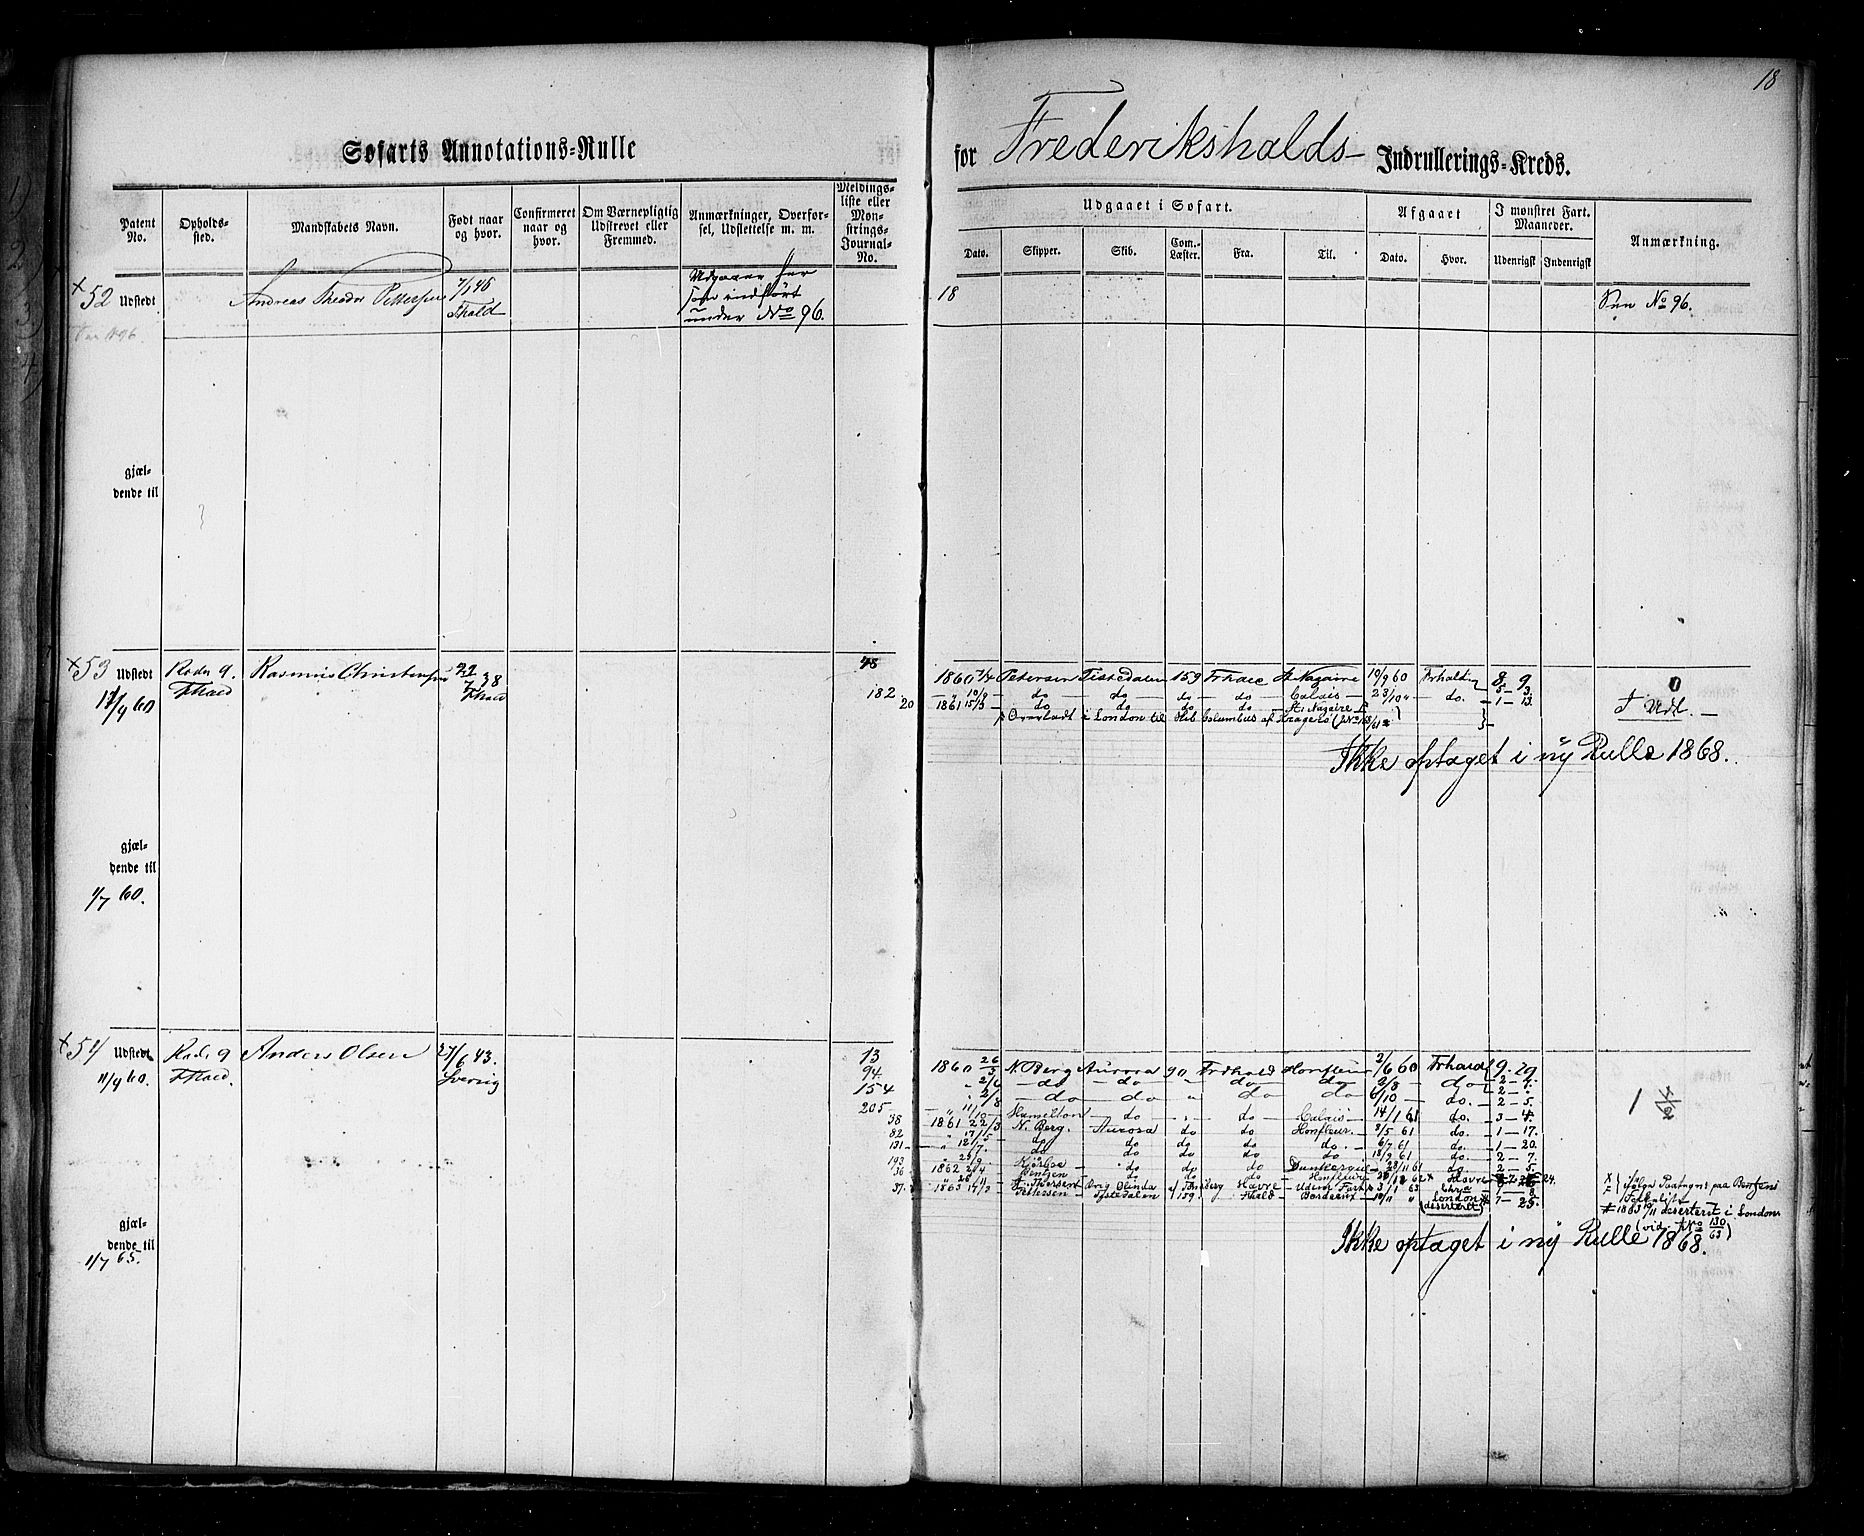 18
Søfarts Annotations-Rulle
for Frederikshalds Indrullerings-Kreds.
Patent No.
Opholds-sted.
Mandskabets Navn.
Født naar og hvor.
Confirmeret naar og hvor.
Om Værnepligtig Udskrevet eller Fremmed.
Anmærkninger, Overfør-sel, Udslettelse m. m.
Meldings-liste eller Møn-strings-Journal-No.
Udgaaet i Søfart.
Afgaaet
I mønstret Fart. Maaneder.
Anmærkning.
Dato. Skipper. Skib. Com.-Læster. Fra. Til. Dato. Hvor. Udenrigst Indenrigst
52 Udstedt Andreas Theodor Pettersen 7/1 46
Fhald
Udgaaer her
som indført
under No 96.
18
See No 96.
gjæl-
dende til
53 Udstedt Rode 9. Rasmus Christensen 22/7 38
Fhald Fhald
11/9 60
48
182.
20
1860 7/4 Petersen Tistedalen 159 Frhald St Nazaire 19/9 60 Frhald 8 9
" 10/9 do do do do Calais 28/10 " do. 5 3.
1861 15/3 do do do do St. Nazaire 1 13.
Overladt i London til Skib Columbus af Kragerø
0
Udl.
Ikke optaget i ny Rulle 1868.
gjæl-
dende til
1/7 60.
54 Udstedt Rode 9 Anders Olsen 27/6 43.
11/9 60. Fhald. Sverrig
13
94.
154
205
38
82
131
193
36
37.
1860 26/3 N. Berg Aurora 90 Frdhald Honfleur 2/6 60 Frhald 9. 29
" 2/6 do do " do do 2/8 do 2 2.
" 2/8 do do " do do 6/10 do. 2 5.
" 11/10 Hamelton do " do Calais 14/1 61 do. 3 4.
1861 22/3 N. Berg. Aurora do do Honfleur 8/5 61 do. 1 17.
" 17/5 do do do do do 6/7 61 do. 1 20.
" 12/7. do do do do do 18/9 61 do. 2 7.
" 25/9 do do do Dunkerque 28/11 61 do. 2 5.
1862 24/4 Bentzen do do do Honfleur Havre
Brig Olinda Havre Udenr. Fart
1863 14/3 Pettersen Tistedalen 159. Fhald Bordeaux 10/11 " London 7 25.
(deserteret)
1
ifølge Paategn: paa Bentzens
Folkeliste
# 1863 10/11 deserteret i London
(vid. No 130/63)
Ikke optaget i ny Rulle 1868.
gjæl-
dende til
1/7 65.